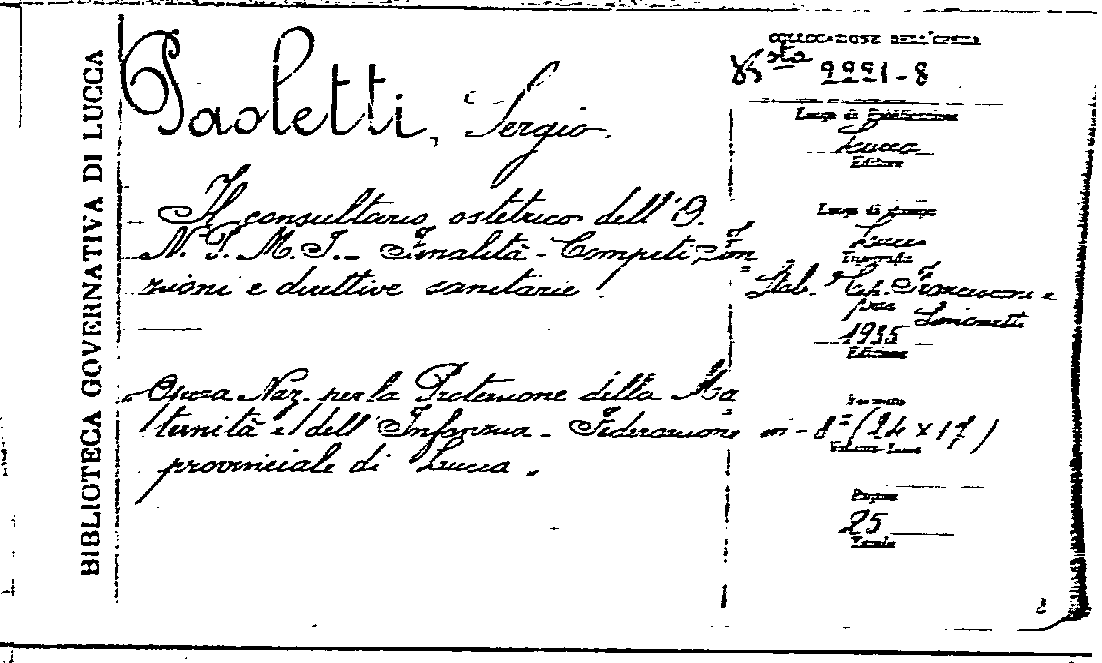 BIBLIOTECA GOVERNATIVA DI LUCCA
Paoletti, Sergio.
Il consultorio ostetrico dell'O.
N. P. M. I. - Finalità - Competi Fon
zioni e direttive sanitarie.
Opera Naz. per la Protezione della Ma
ternità e dell'Infanzia - Federazione
provinciale di Lucca.
COLLOCAZIONE DELL'OPERA
Bsta 2221-8
Luogo di Pubblicazione
Lucca
Editore
Luogo di stampa
Lucca
Tipografia
Stab. Tip. Francesconi e
Simonetti
1935
Edizione
Formato
in-8° (24 x 17)
Pagine
25
Tavole